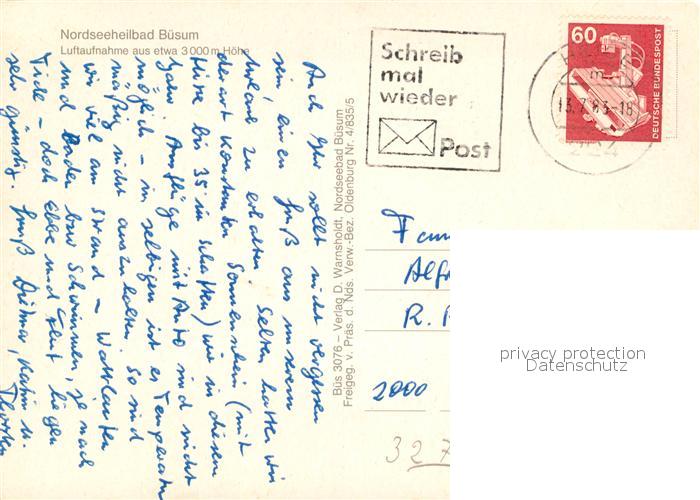 Nordseeheilbad Büsum
Luftaufnahme aus etwa 3000 m Höhe
Auch Ihr sollt nicht vergessen
sein, einen Gruß aus unserem
Urlaub zu erhalten. Selten hatten wir
derart konstanten Sonnenschein (mit
Hitze bis 35 im Schatten) wie in diesem
Jahr. Ausflüge mit Auto sind nicht
möglich – in selbigen ist es temperatur
mäßig nicht auszuhalten. So sind
wir viel am Strand – Wattlaufen
und Baden bzw Schwimmen, je nach
Tide – doch Ebbe und Flut liegen
sehr günstig. Gruß Dietmar, Katrin u.
Thorsten
Büs 3076 – Verlag D. Warnsholdt, Nordseebad Büsum
Freigeg. v. Präs. d. Nds. Verw.-Bez. Oldenburg Nr. 4/835/5
Schreib
mal
wieder
Post
60
DEUTSCHE BUNDESPOST
13.7.83-18
2242
Fam
Alf
R.
2000
327
privacy protection
Datenschutz